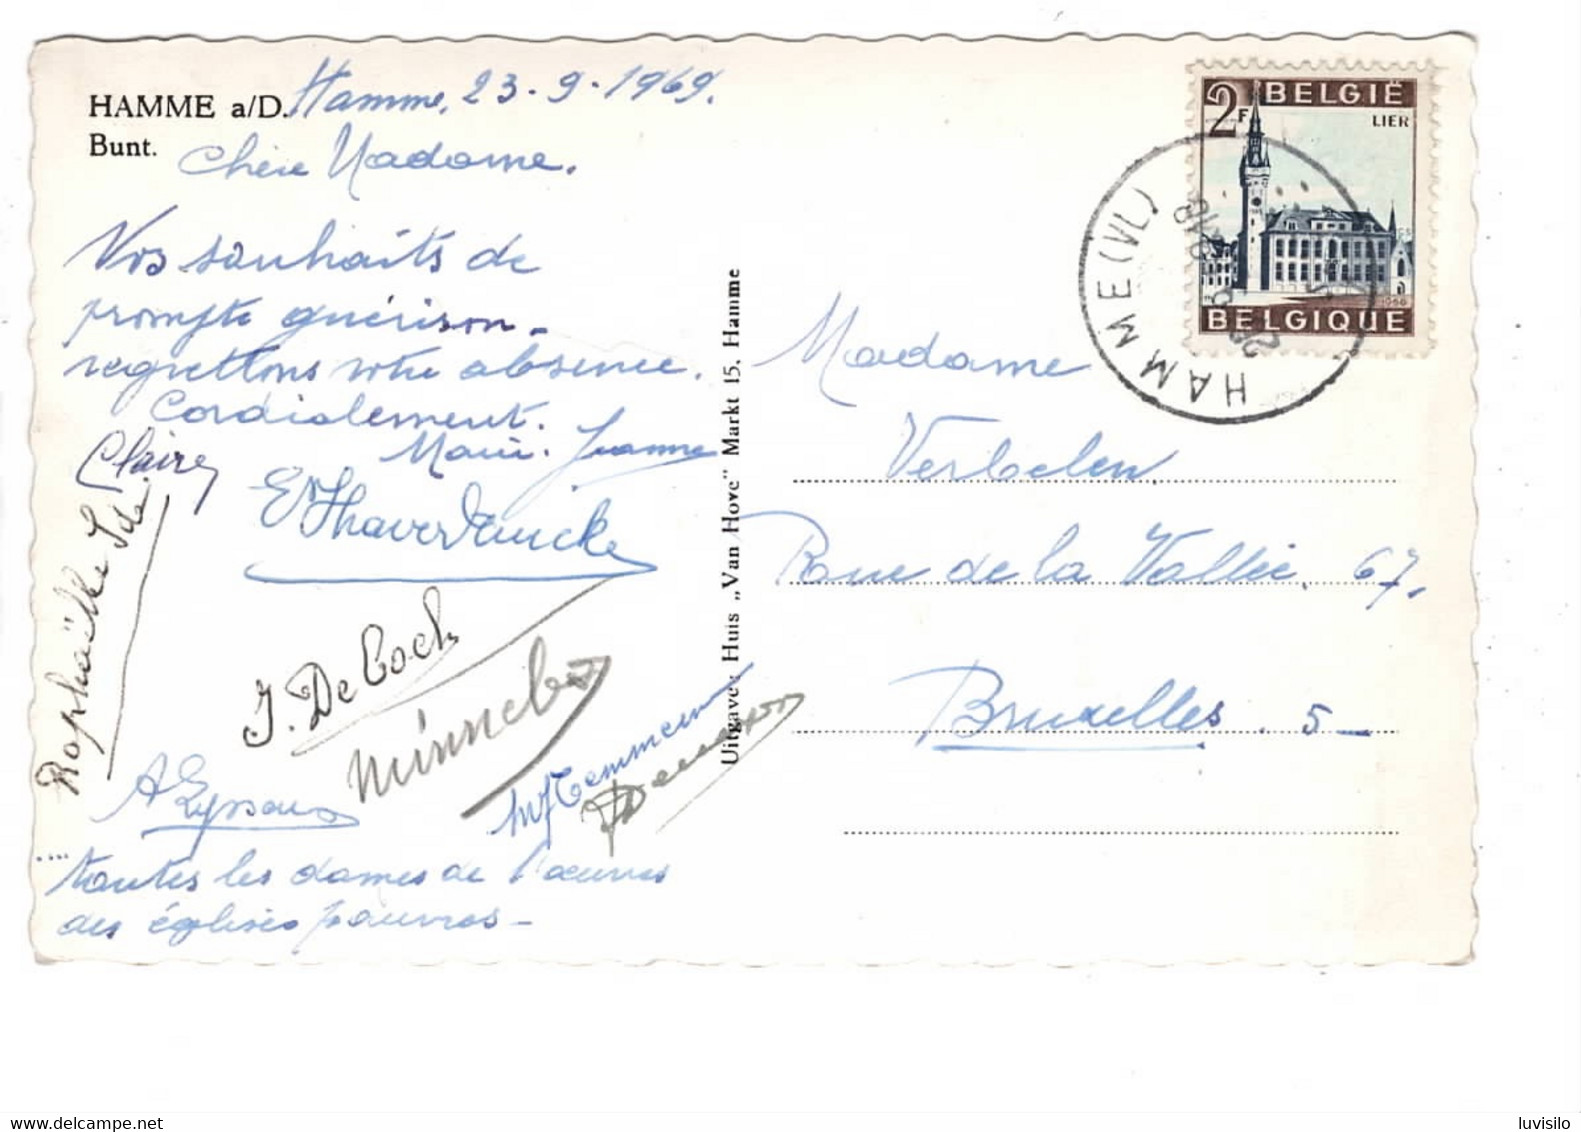 HAMME a/D.
Bunt.
Hamme, 23-9-1969.
Chère Madame,
Vos souhaits de
prompte guérison -
regrettons votre absence.
Cordialement.
Marie-Jeanne
Claire
Raphaëlle Ide
J. De Coch
Minnebo
toutes les dames de l'oeuvres
des églises pauvres -
Uitgave: Huis „Van Hove" Markt 15, Hamme
2F BELGIË
LIER
1966
BELGIQUE
HAMME (VL)
Madame
Verbelen
Rue de la Vallée, 67,
Bruxelles. 5 -
luvisilo